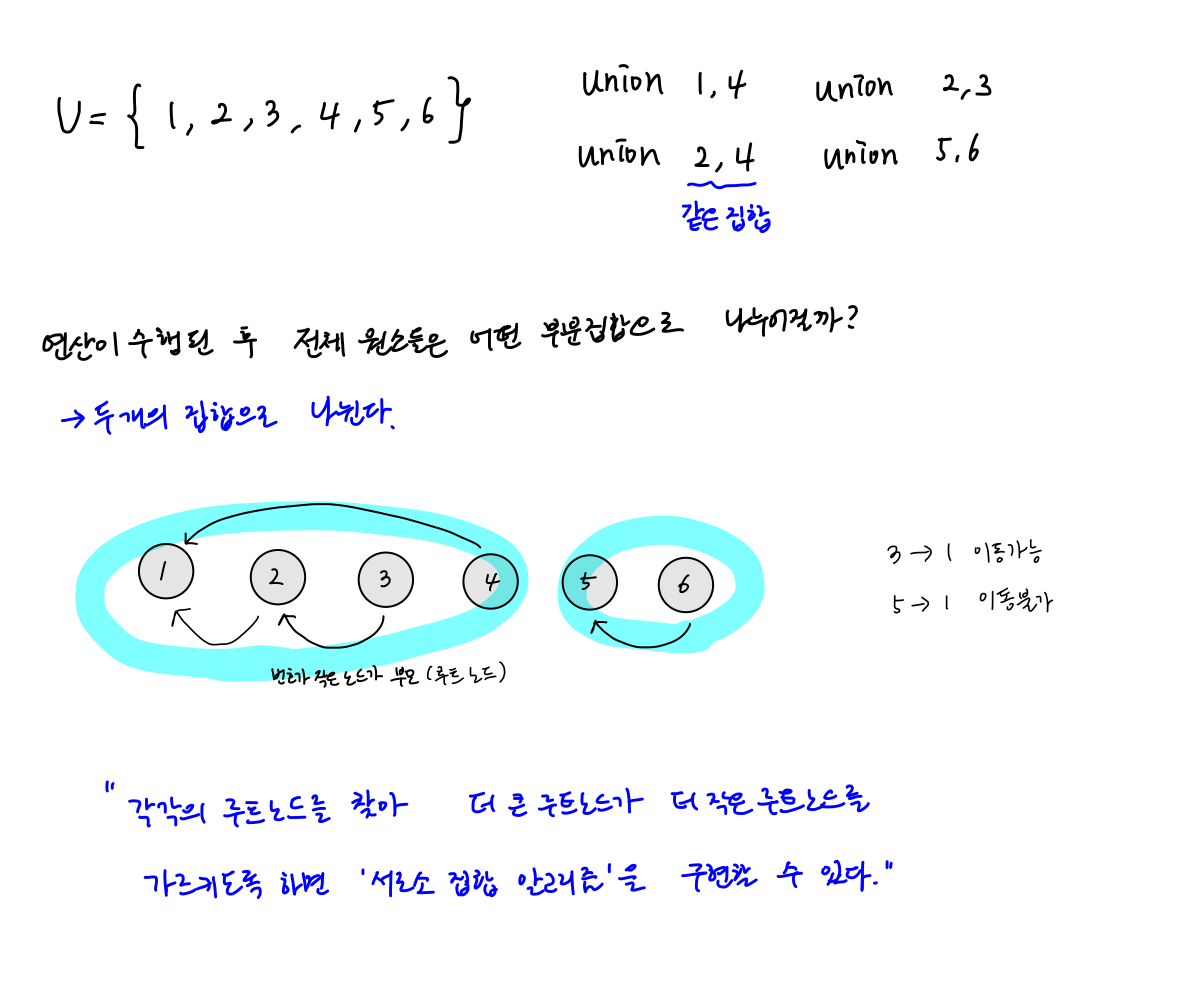 U = { 1, 2, 3, 4, 5, 6 }
union 1, 4 union 2, 3
union 2, 4 union 5, 6
같은 집합
연산이 수행된 후 전체 원소들은 어떤 부분집합으로 나누어질까?
→ 두개의 집합으로 나뉜다.
1 2 3 4 5 6
3 → 1 이동가능
5 → 1 이동불가
번호가 작은 노드가 부모 (루트 노드)
" 각각의 루트노드를 찾아 더 큰 루트노드가 더 작은 루트노드를
가르키도록 하면 '서로소 집합 알고리즘'을 구현할 수 있다."